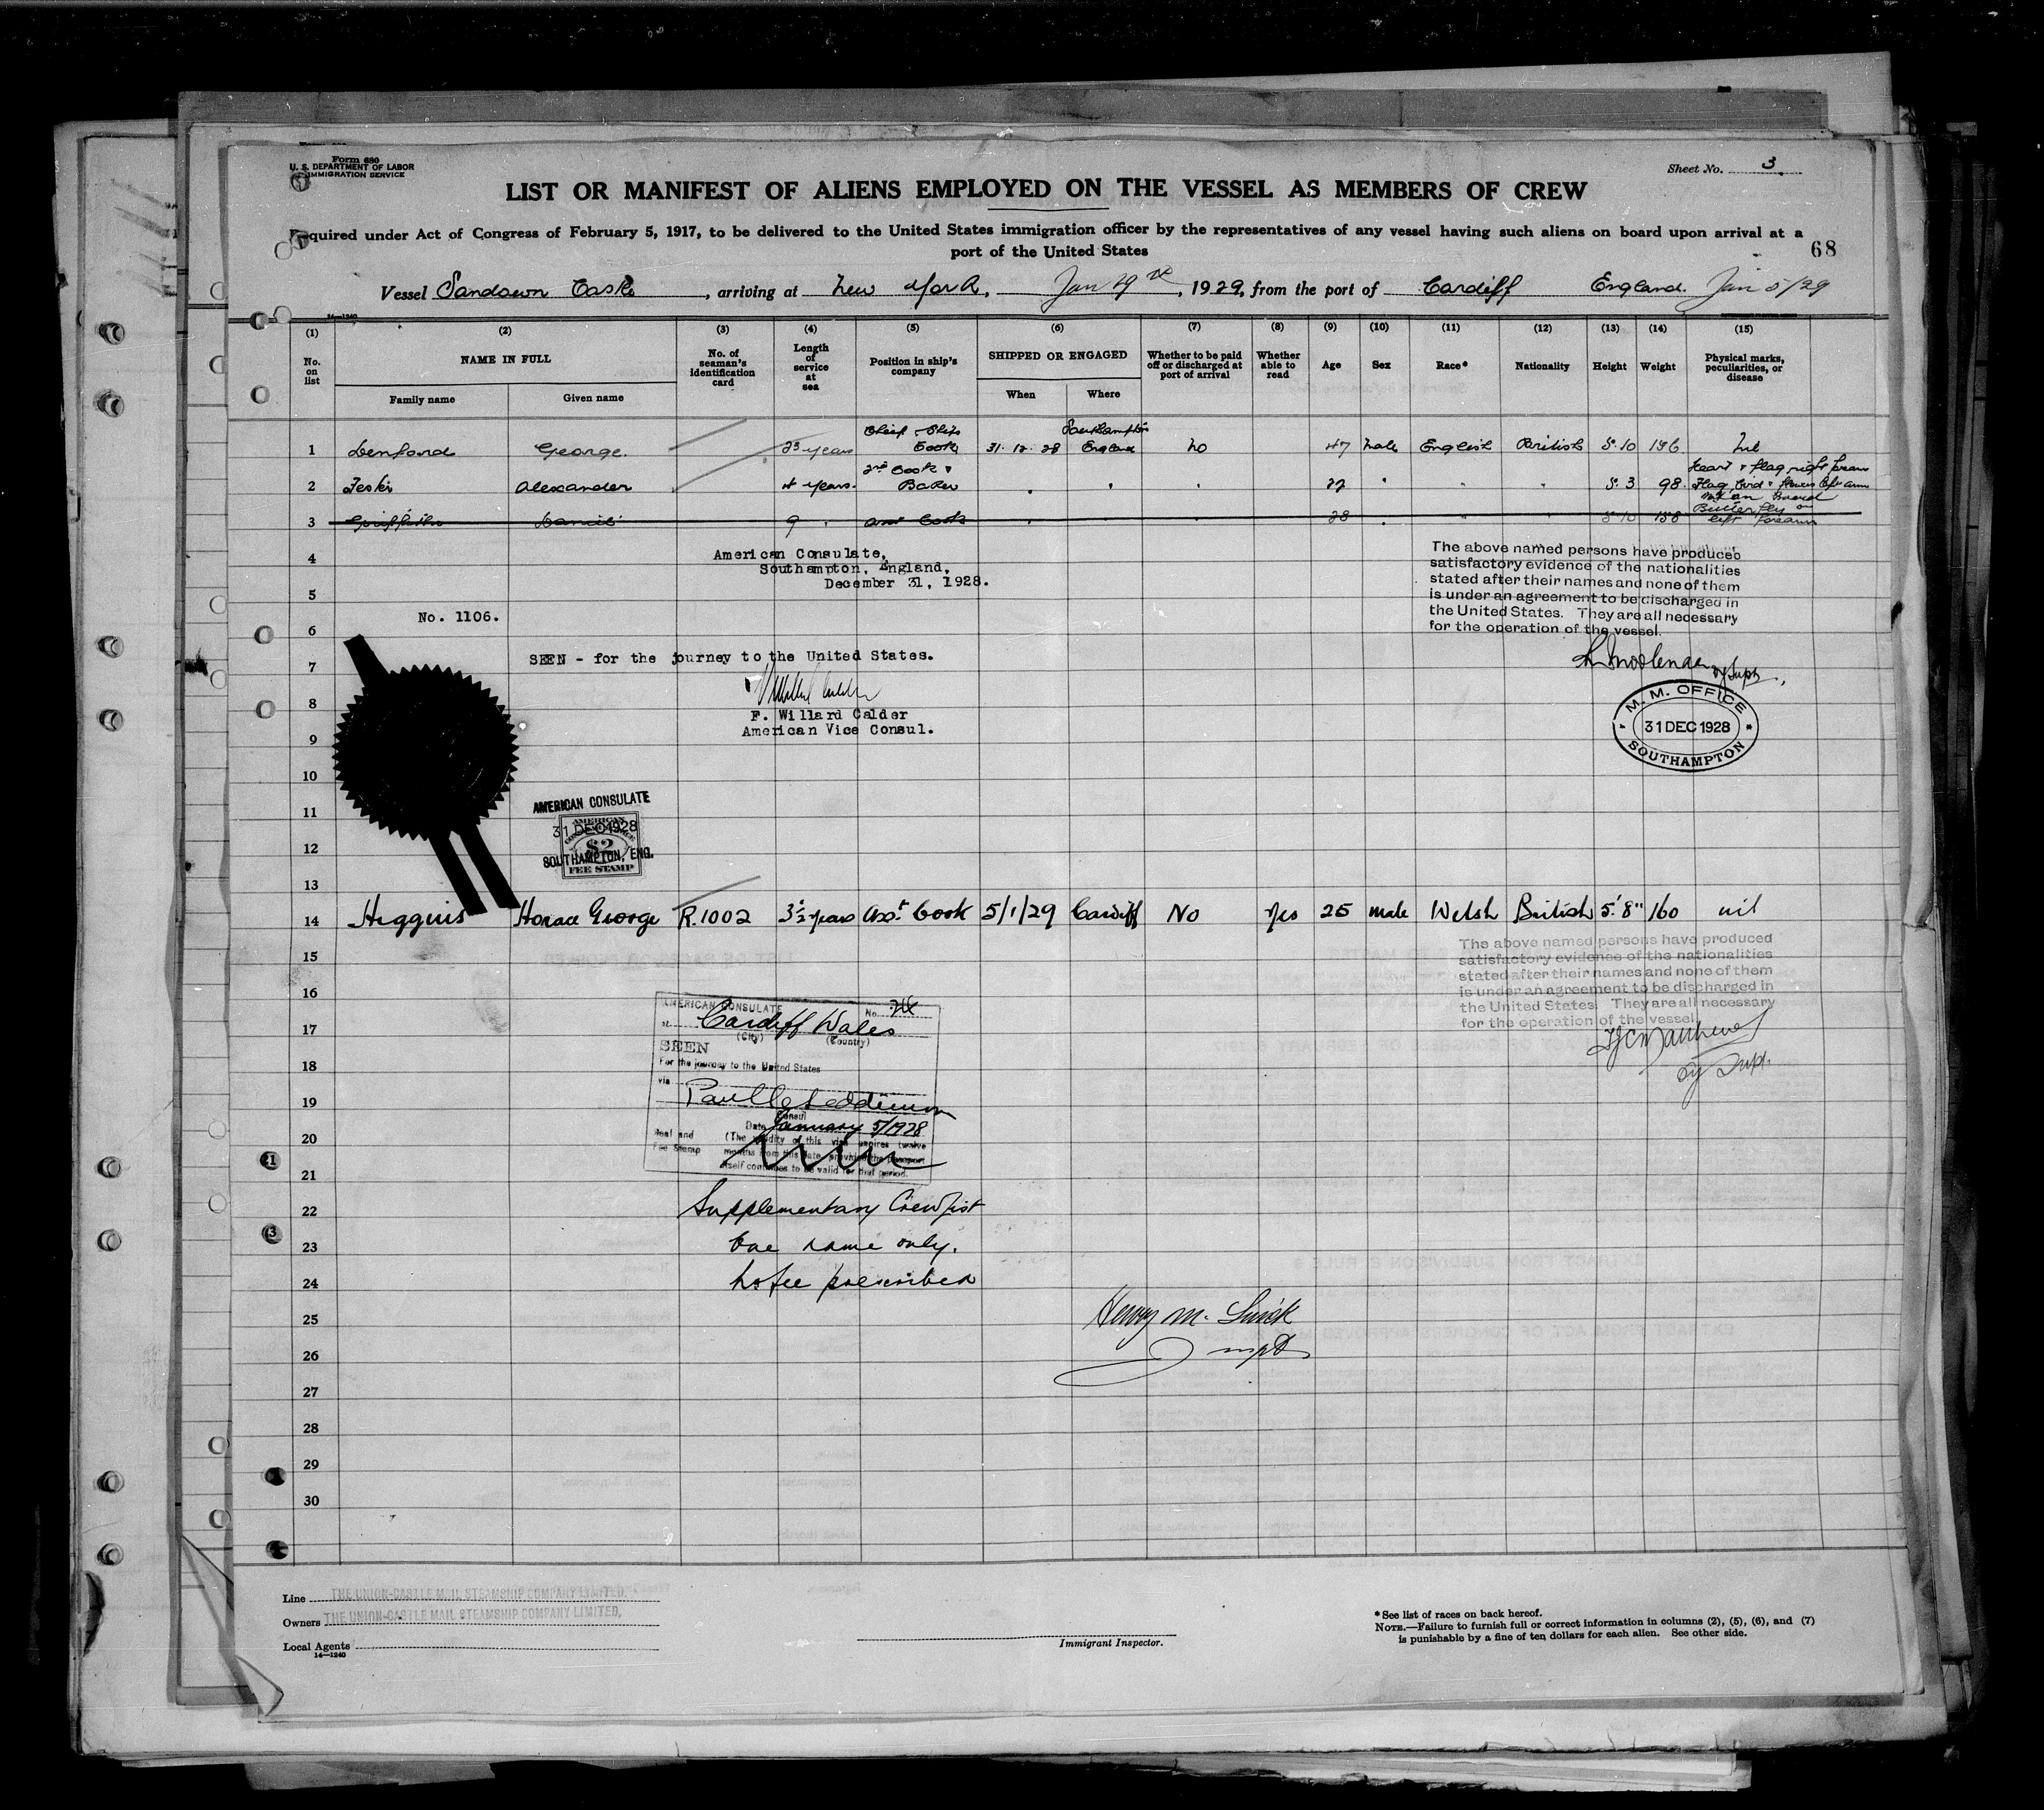 Form 680
U. S. DEPARTMENT OF LABOR
IMMIGRATION SERVICE
Sheet No. 3
LIST OR MANIFEST OF ALIENS EMPLOYED ON THE VESSEL AS MEMBERS OF CREW
Required under Act of Congress of February 5, 1917, to be delivered to the United States immigration officer by the representatives of any vessel having such aliens on board upon arrival at a
port of the United States
68
Vessel Sandown Castle, arriving at New York, Jan 19th, 1929, from the port of Cardiff England. Jan 5/29
14—1240
(1) (2) (3) (4) (5) (6) (7) (8) (9) (10) (11) (12) (13) (14) (15)
No. on list
NAME IN FULL
Family name
Given name
No. of seaman's identification card
Length of service at sea
Position in ship's company
SHIPPED OR ENGAGED
When
Where
Whether to be paid off or discharged at port of arrival
Whether able to read
Age
Sex
Race*
Nationality
Height
Weight
Physical marks, peculiarities, or disease
1 Denford George. 23 years Chief Ships Cook 31.12.28 Southampton England No 47 male English British 5.10 196 Nil
2 Teski Alexander 4 years. 2nd Cook & Baker 22 5.3 98. Heart & flag right forearm
3 Griffiths Daniel 9 asst Cook 28 5.10 158 Butterfly on left forearm
4
American Consulate,
Southampton, England,
December 31, 1928.
5
No. 1106.
6
The above named persons have produced
satisfactory evidence of the nationalities
stated after their names and none of them
is under an agreement to be discharged in
the United States. They are all necessary
for the operation of the vessel.
7
SEEN - for the journey to the United States.
8
F. Willard Calder
American Vice Consul.
M. M. OFFICE
31 DEC 1928
SOUTHAMPTON
9
10
11
AMERICAN CONSULATE
31 DEC 1928
SOUTHAMPTON, ENG.
AMERICAN
$2
FEE STAMP
12
13
14 Higgins Horace George R.1002 3½ years Asst. Cook 5/1/29 Cardiff No Yes 25 male Welsh British 5'.8" 160 nil
The above named persons have produced
satisfactory evidence of the nationalities
stated after their names and none of them
is under an agreement to be discharged in
the United States. They are all necessary
for the operation of the vessel.
15
16
17
18
19
20
21
AMERICAN CONSULATE No.
at Cardiff Wales
(City) (Country)
SEEN
For the journey to the United States
via
Consul
Date January 5/1928
Seal and
Fee Stamp
(The validity of this visa expires twelve
months from this date, provided the passport
itself continues to be valid for that period.
22 Supplementary Crew List
23 One name only.
24 No fee prescribed
25
26
27
28
29
30
Line THE UNION-CASTLE MAIL STEAMSHIP COMPANY LIMITED.
Owners THE UNION-CASTLE MAIL STEAMSHIP COMPANY LIMITED,
Local Agents
14—1240
Immigrant Inspector.
*See list of races on back hereof.
NOTE.—Failure to furnish full or correct information in columns (2), (5), (6), and (7)
is punishable by a fine of ten dollars for each alien. See other side.